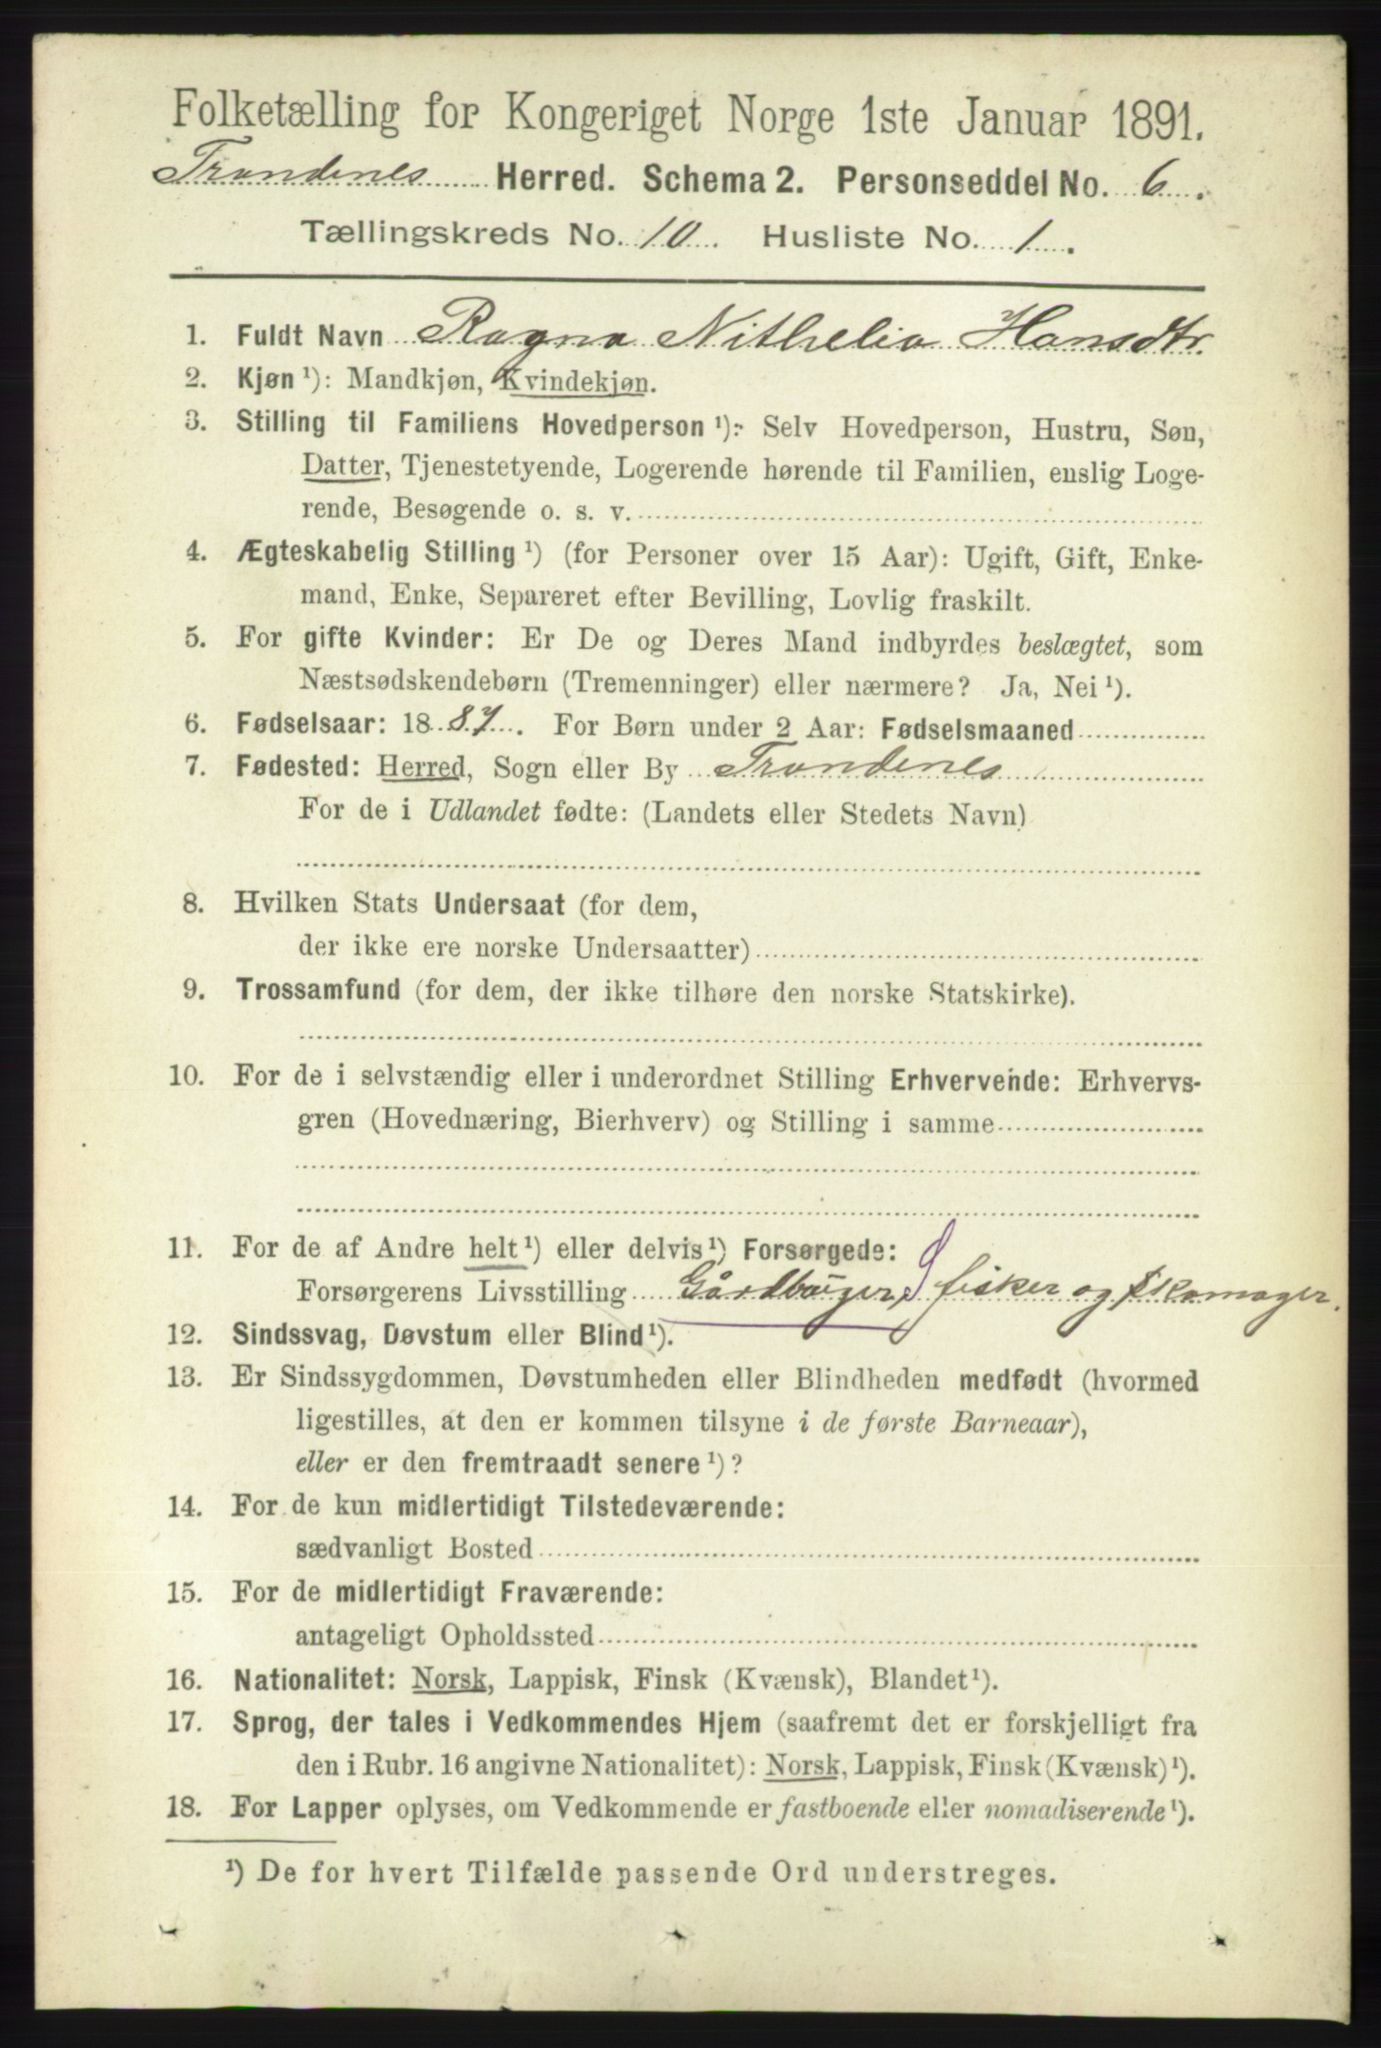 Folketælling for Kongeriget Norge 1ste Januar 1891.
Trondenes Herred. Schema 2. Personseddel No. 6.
Tællingskreds No. 10. Husliste No. 1.
1. Fuldt Navn Ragna Nithelia Hansdtr.
2. Kjøn ¹): Mandkjøn, Kvindekjøn.
3. Stilling til Familiens Hovedperson ¹): Selv Hovedperson, Hustru, Søn,
Datter, Tjenestetyende, Logerende hørende til Familien, enslig Loge-
rende, Besøgende o. s. v.
4. Ægteskabelig Stilling ¹) (for Personer over 15 Aar): Ugift, Gift, Enke-
mand, Enke, Separeret efter Bevilling, Lovlig fraskilt.
5. For gifte Kvinder: Er De og Deres Mand indbyrdes beslægtet, som
Næstsødskendebørn (Tremenninger) eller nærmere? Ja, Nei ¹).
6. Fødselsaar: 1887. For Børn under 2 Aar: Fødselsmaaned
7. Fødested: Herred, Sogn eller By Trondenes
For de i Udlandet fødte: (Landets eller Stedets Navn)
8. Hvilken Stats Undersaat (for dem,
der ikke ere norske Undersaatter)
9. Trossamfund (for dem, der ikke tilhøre den norske Statskirke).
10. For de i selvstændig eller i underordnet Stilling Erhvervende: Erhvervs-
gren (Hovednæring, Bierhverv) og Stilling i samme
11. For de af Andre helt ¹) eller delvis ¹) Forsørgede:
Forsørgerens Livsstilling Gårdbruger, fisker og skomager.
12. Sindssvag, Døvstum eller Blind ¹).
13. Er Sindssygdommen, Døvstumheden eller Blindheden medfødt (hvormed
ligestilles, at den er kommen tilsyne i de første Barneaar),
eller er den fremtraadt senere ¹)?
14. For de kun midlertidigt Tilstedeværende:
sædvanligt Bosted
15. For de midlertidigt Fraværende:
antageligt Opholdssted
16. Nationalitet: Norsk, Lappisk, Finsk (Kvænsk), Blandet ¹).
17. Sprog, der tales i Vedkommendes Hjem (saafremt det er forskjelligt fra
den i Rubr. 16 angivne Nationalitet): Norsk, Lappisk, Finsk (Kvænsk) ¹).
18. For Lapper oplyses, om Vedkommende er fastboende eller nomadiserende ¹).
¹) De for hvert Tilfælde passende Ord understreges.